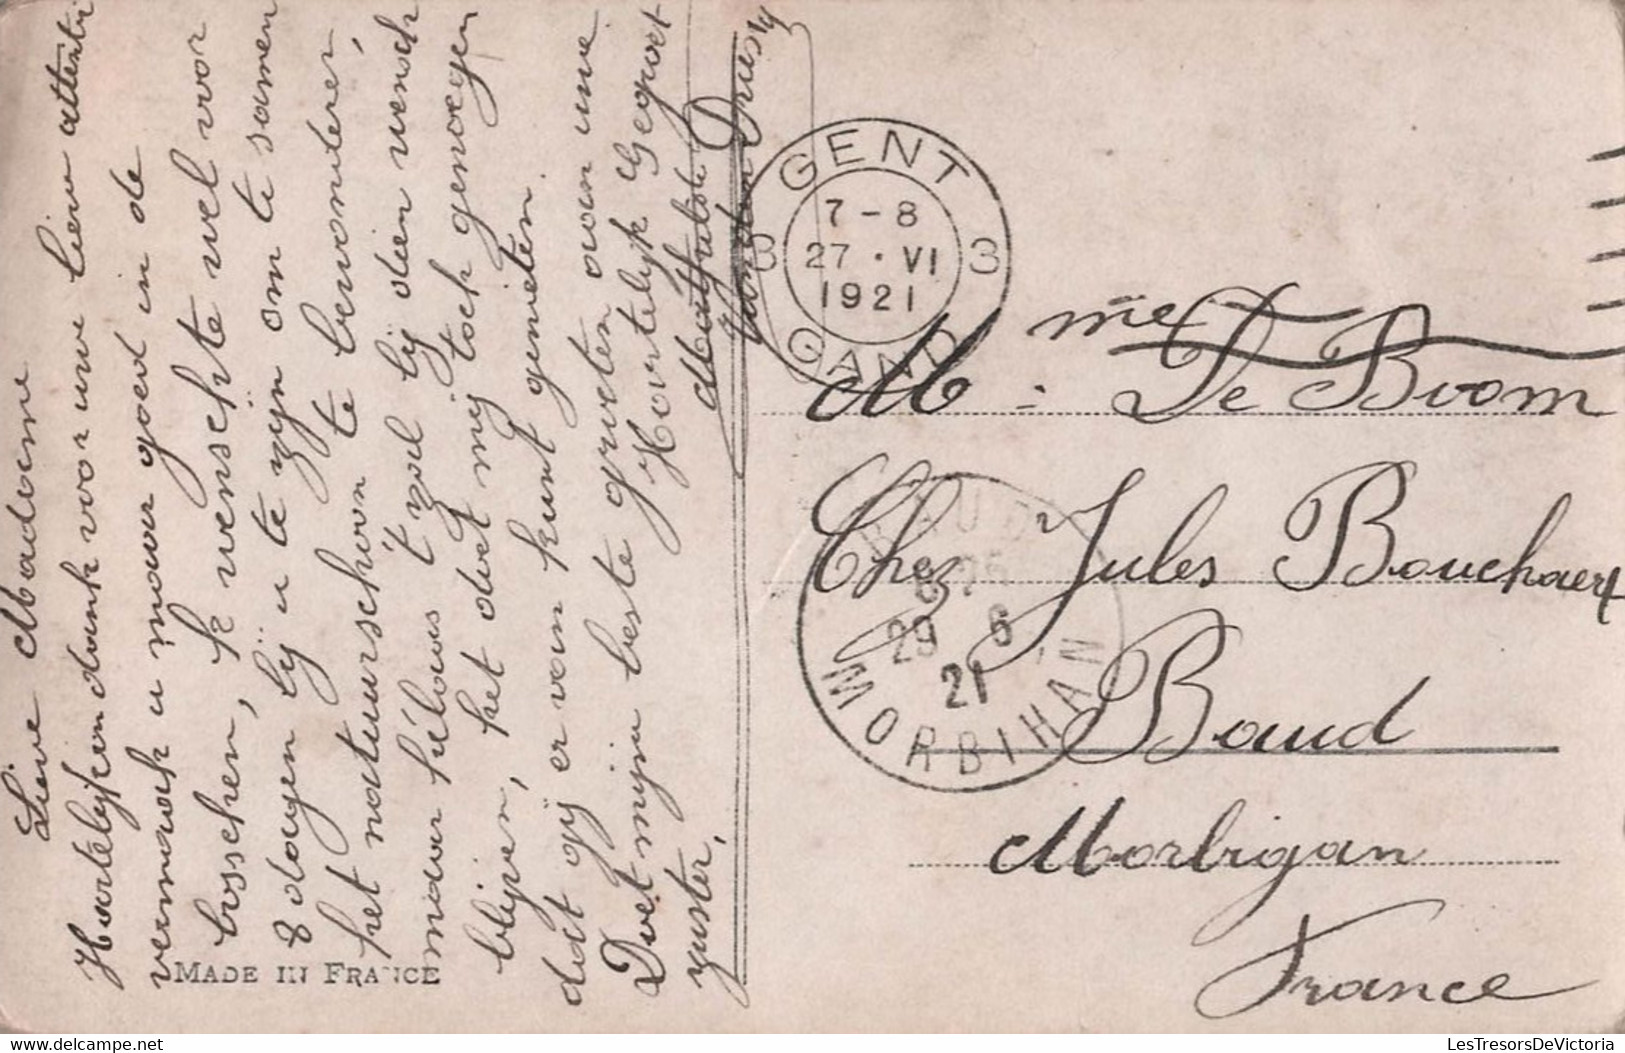 Lieve Madame
Hartelijken dank voor uwe lieve attentie
vermaak u maar goed in de
bosschen, k wenschte wel voor
8 dagen bij u te zijn om te samen
het natuurschoon te bewonderen,
maar hélaas 't zal bij dien wensch
blijven, het doet mij toch genoegen
dat gij er van kunt genieten.
Doet mijn beste groeten aan uwe
zuster,
Hartelijk Gegroet
GENT
7-8
27 · VI
1921
GAND
3
3
M me De Boom
Chez Jules Bouchaert
Baud
Morbigan
France
29 6
21
MORBIHAN
MADE IN FRANCE
LesTresorsDeVictoria
delcampe.net